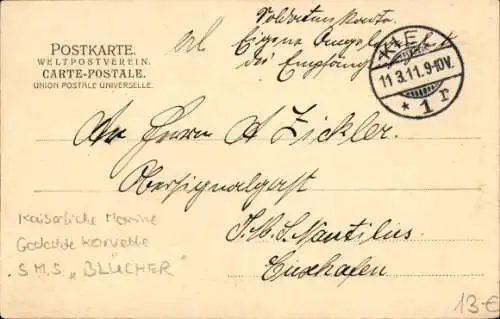 Soldatenkarte.
Eigene Angel
des Empfäng
POSTKARTE.
WELTPOSTVEREIN.
CARTE-POSTALE.
UNION POSTALE UNIVERSELLE.
KIEL
11.3.11.9-10V.
* 1 r
An Herrn A Zickler.
Obersignalgast
S.M.S Nautilus
Cuxhafen
Kaiserliche Marine
Gedeckte Korvette
S.M.S. „BLÜCHER"
13€